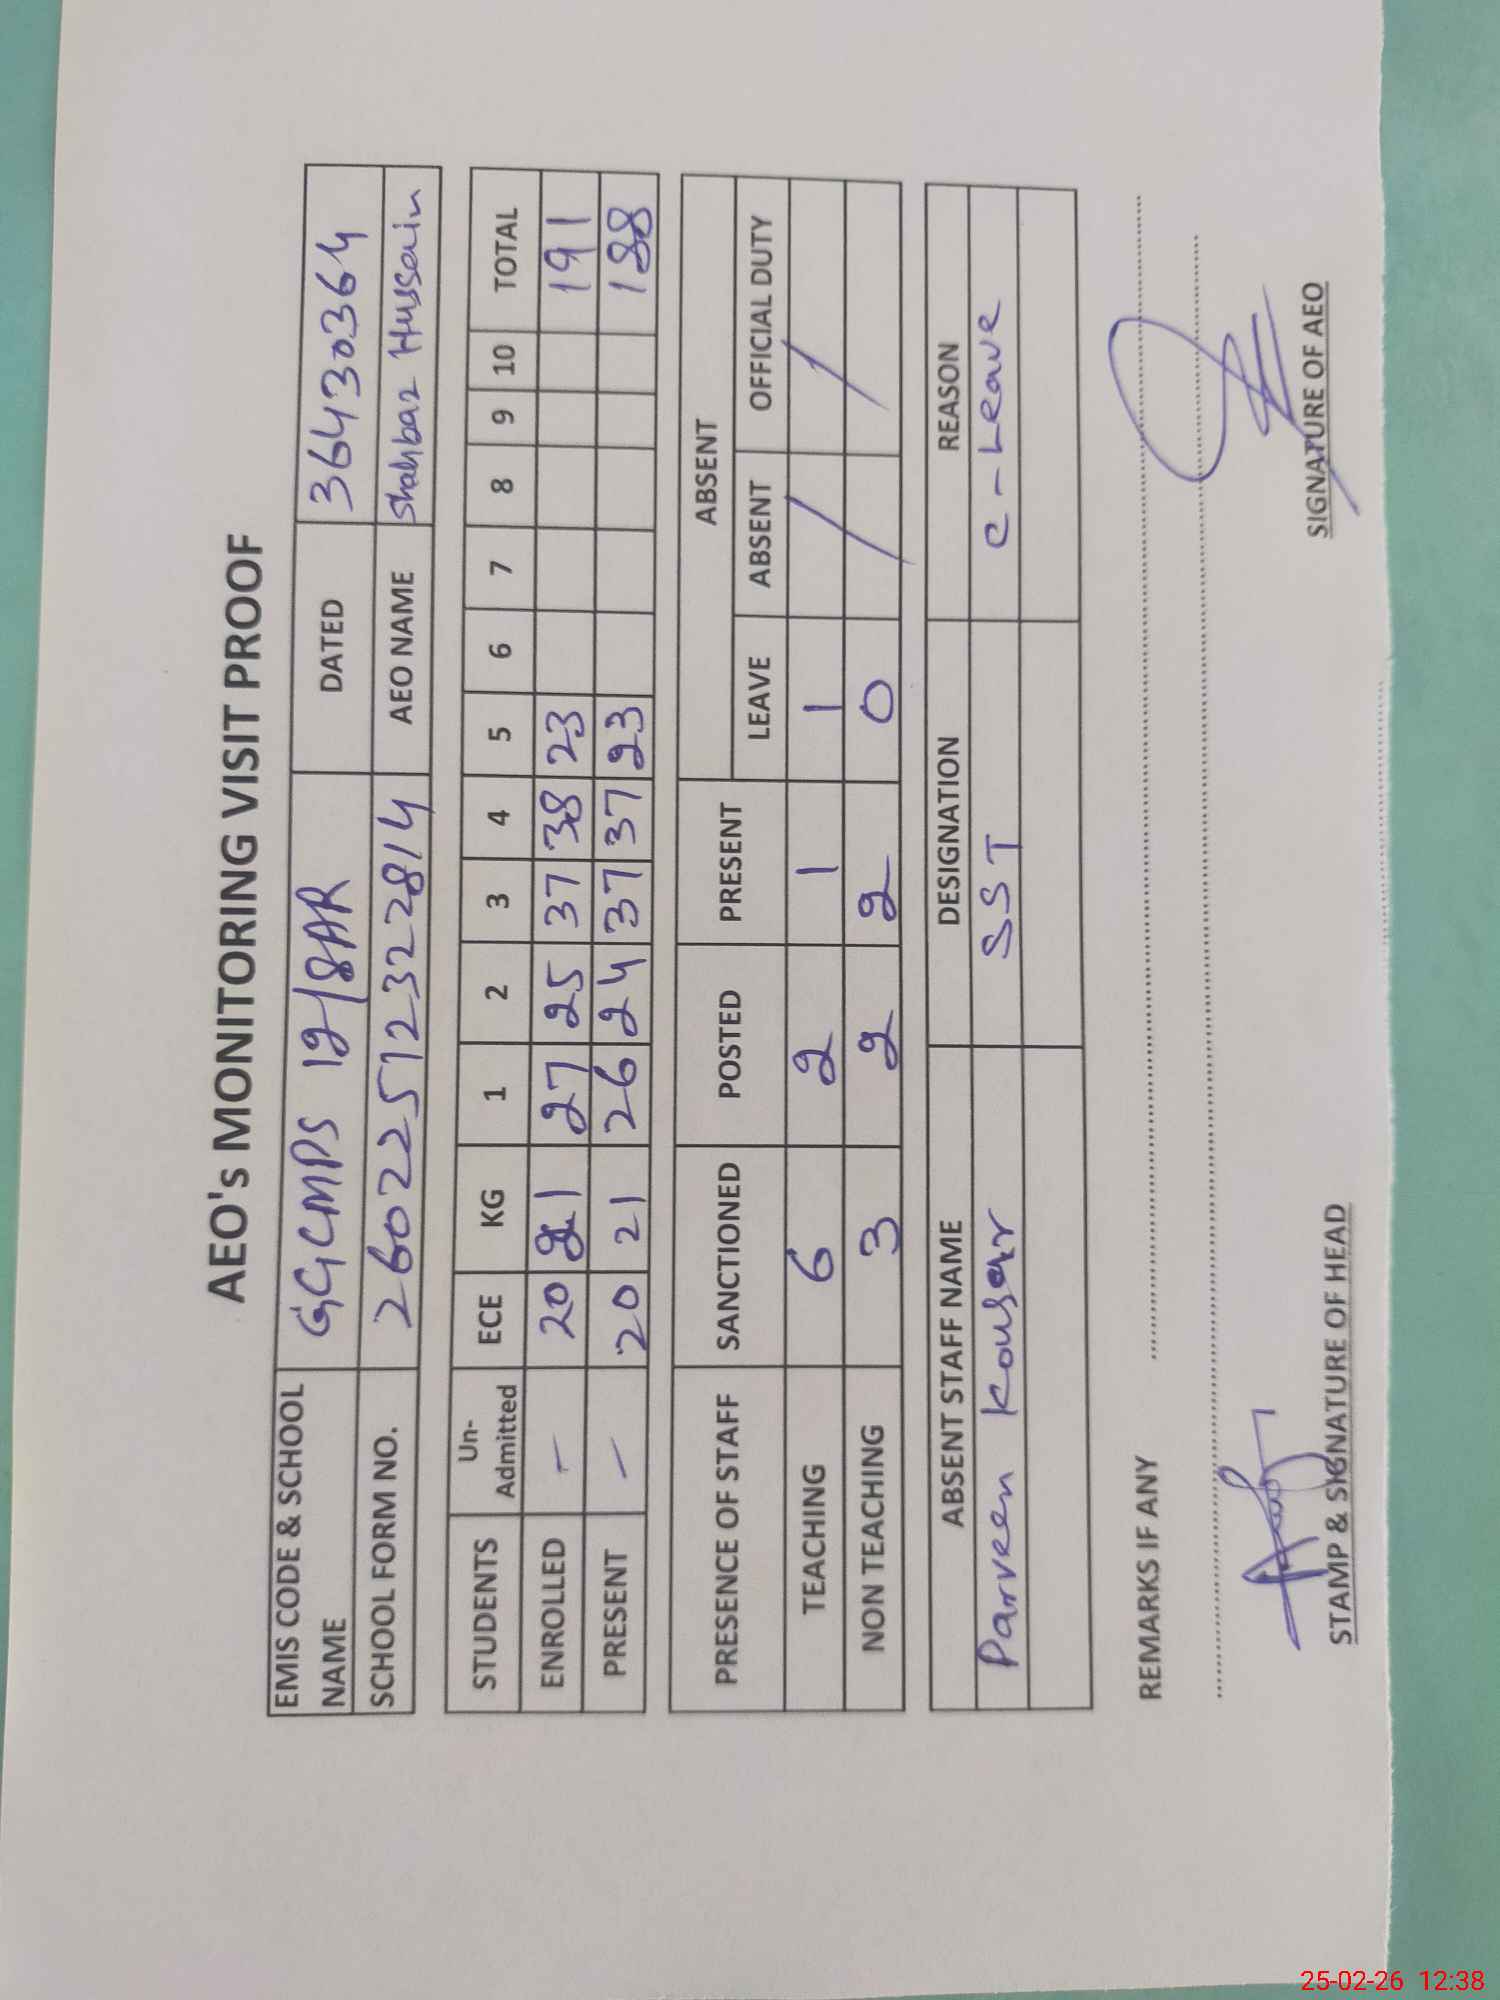 AEO's MONITORING VISIT PROOF
EMIS CODE & SCHOOL NAME GGCMPS 12/8AR DATED 36430364
SCHOOL FORM NO. 26022512322814 AEO NAME Shahbaz Hussain
STUDENTS Un-Admitted ECE KG 1 2 3 4 5 6 7 8 9 10 TOTAL
ENROLLED - 20 21 27 25 37 38 23 191
PRESENT - 20 21 26 24 37 37 23 188
PRESENCE OF STAFF SANCTIONED POSTED PRESENT ABSENT
LEAVE ABSENT OFFICIAL DUTY
TEACHING 6 2 1 1 / /
NON TEACHING 3 2 2 0
ABSENT STAFF NAME DESIGNATION REASON
Parveen Kousar SST C-Leave
REMARKS IF ANY
STAMP & SIGNATURE OF HEAD SIGNATURE OF AEO
25-02-26 12:38